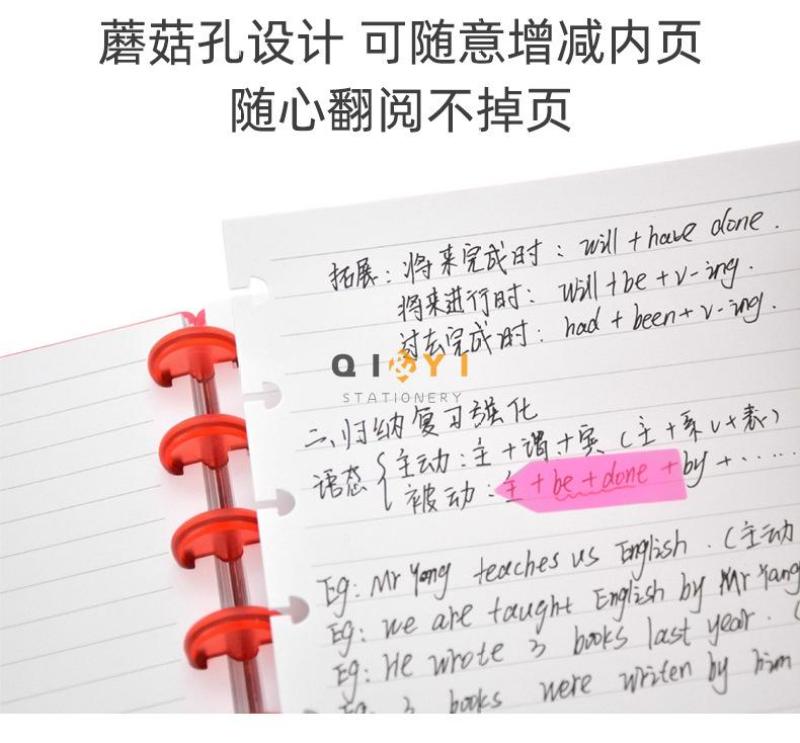 蘑菇孔设计 可随意增减内页
随心翻阅不掉页
拓展：将来完成时：will + have done.
将来进行时：will + be + v-ing.
过去完成时：had + been + v-ing.
QIYI
STATIONERY
二、归纳复习强化
语态 主动：主 + 谓 + 宾 (主 + 系 v + 表)
被动：主 + be + done + by + ......
Eg: Mr Yang teaches us English. (主动
Eg: we are taught English by Mr Yang
Eg: He wrote 3 books last year. (
Eg: 3 books were writen by him